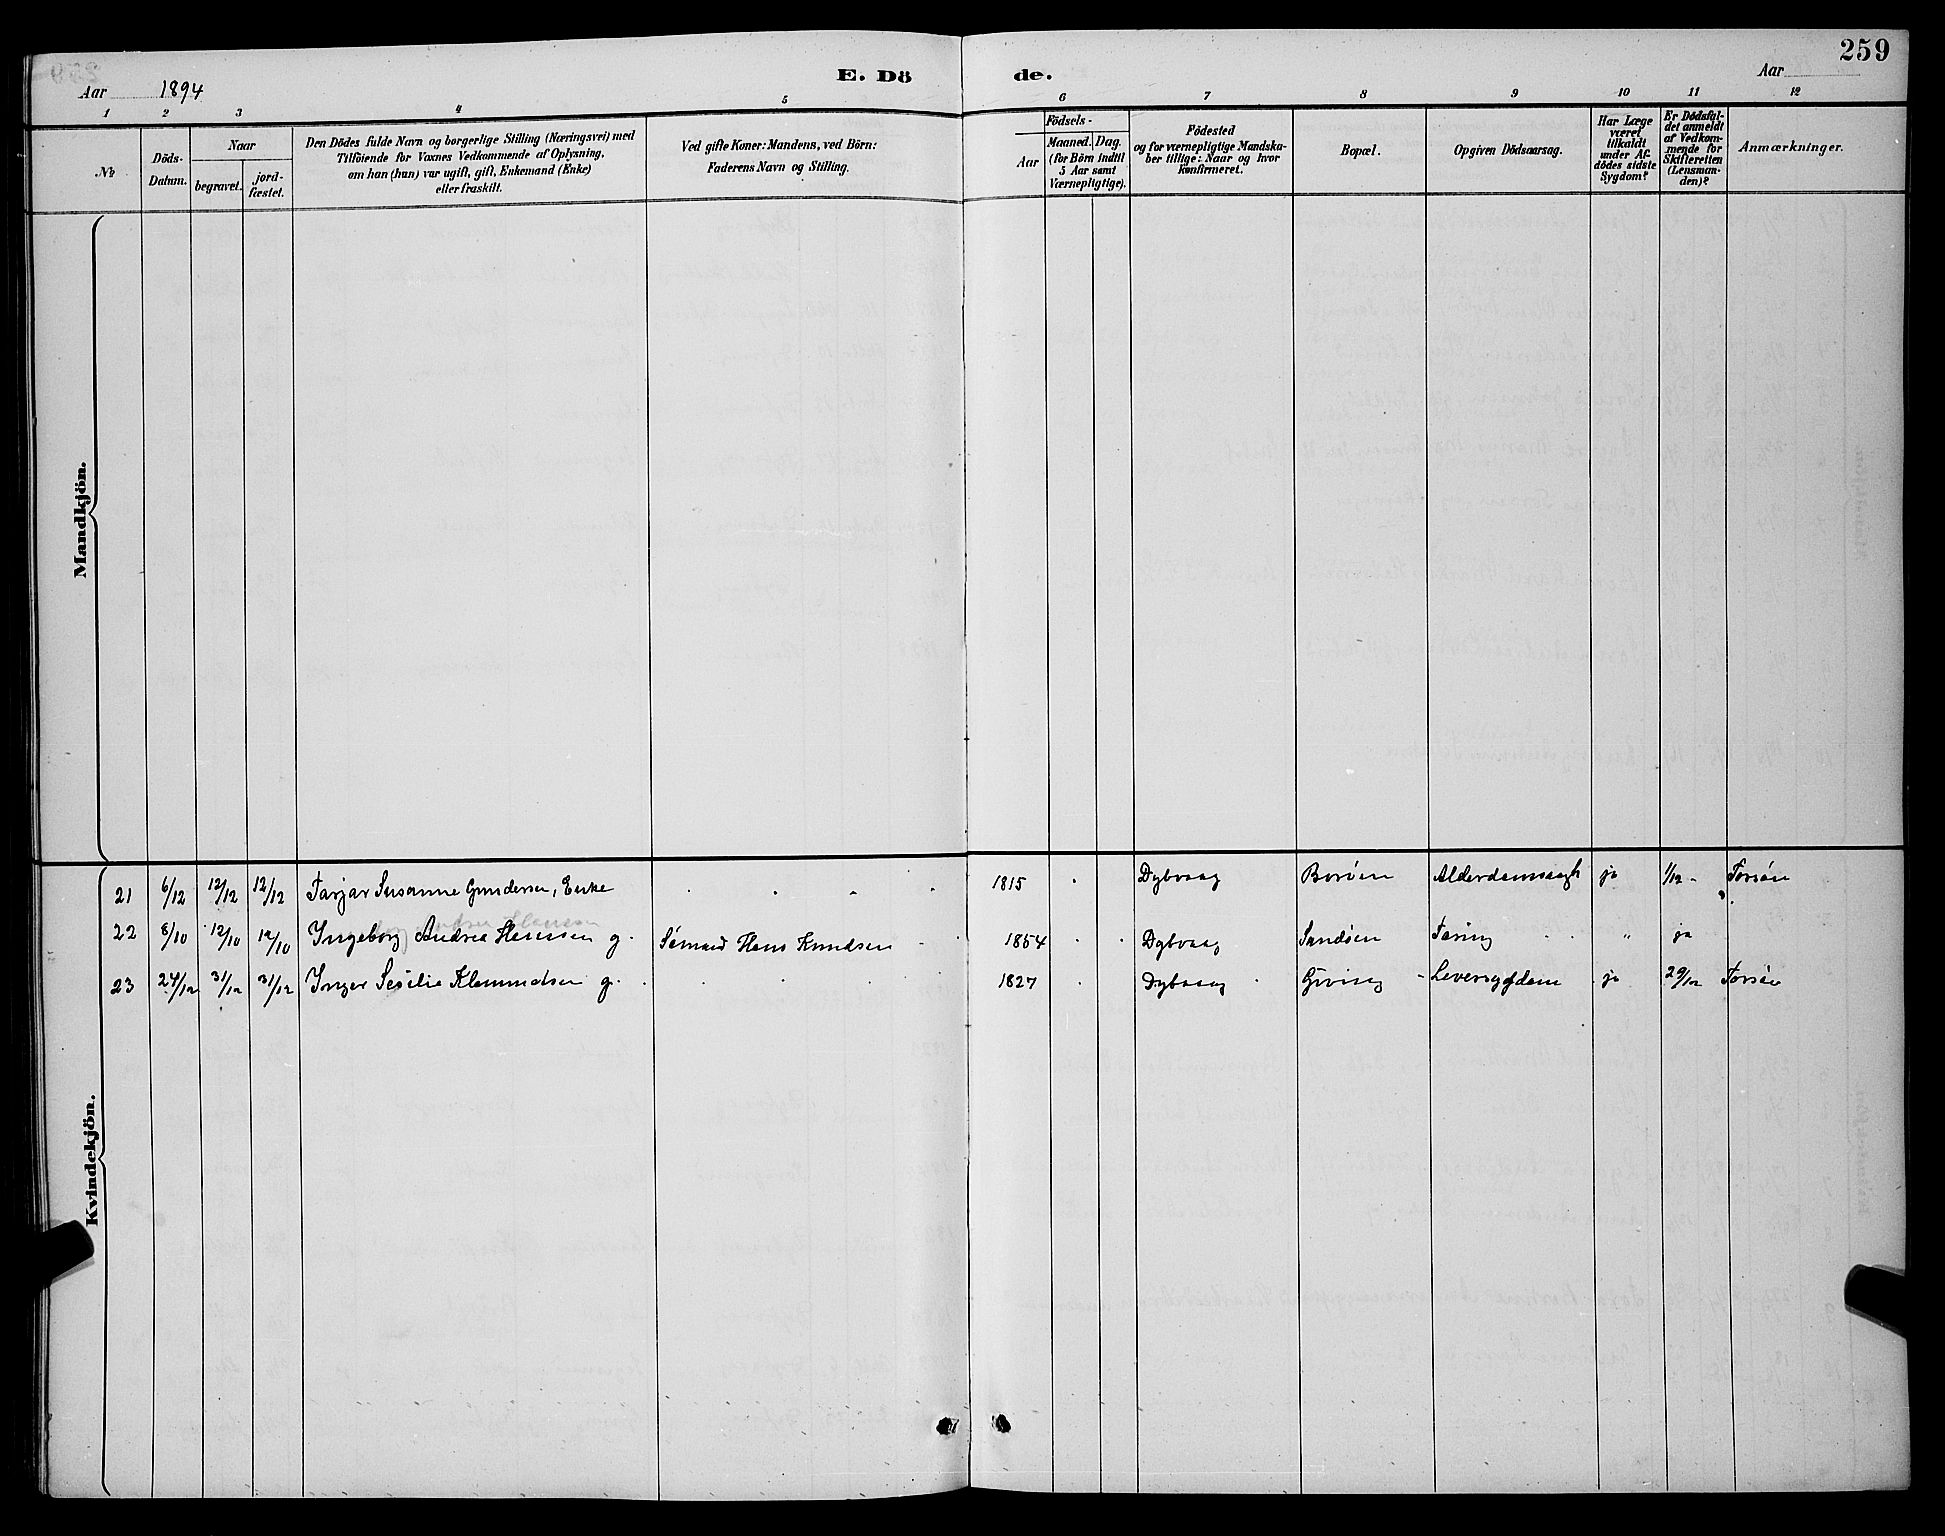 259
Aar 1894
E. Dö
de.
Aar
1 2 3 4 5 6 7 8 9 10 11 12
№
Döds-
Datum.
Naar
begravet.
jord-
fæstet.
Den Dödes fulde Navn og borgerlige Stilling (Næringsvei) med
Tilföiende for Voxnes Vedkommende af Oplysning,
om han (hun) var ugift, gift, Enkemand (Enke)
eller fraskilt.
Ved gifte Koner: Mandens, ved Börn:
Faderens Navn og Stilling.
Födsels-
Aar
Maaned. Dag.
(for Börn indtil
5 Aar samt
Værnepligtige).
Födested
og for værnepligtige Mandska-
ber tillige: Naar og hvor
konfirmeret.
Bopæl.
Opgiven Dödsaarsag.
Har Læge
været
tilkaldt
under Af-
dödes sidste
Sygdom?
Er Dödsfal-
det anmeldt
af Vedkom-
mende for
Skifteretten
(Lensman-
den)?
Anmærkninger.
Mandkjön.
Kvindekjön.
21 6/12 12/12 12/12 Tarjer Susanne Gundersen, Enke 1815 Dybvaag Borøen Alderdomssvagh ja 1/12 - Torsøe
22 8/10 12/10 12/10 Ingeborg Andrea Hansen g. Sømand Hans Knudsen 1854 Dybvaag Sandøen Tæring " ja
23 24/12 31/12 31/12 Inger Sesilie Klemmedsen g. 1827 Dybvaag Giving Leversygdom ja 29/12 Torsøe